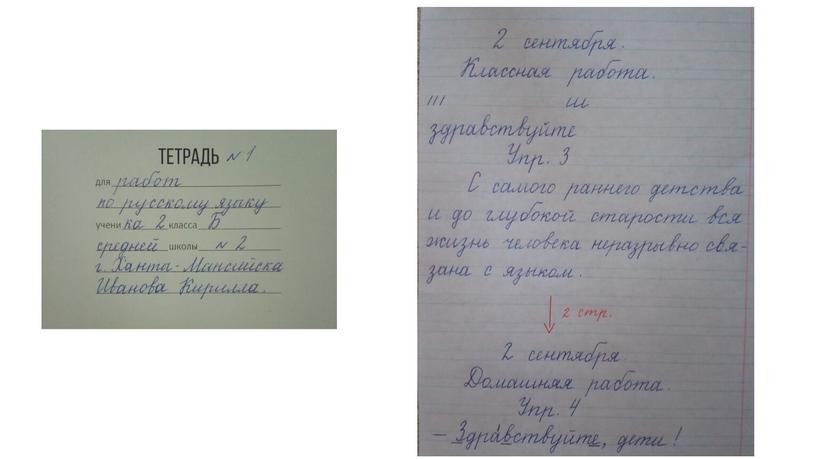 ТЕТРАДЬ № 1
для работ
по русскому языку
учени ка 2 класса Б
средней школы № 2
г. Ханты-Мансийска
Иванова Кирилла.
2 сентября.
Классная работа.
ш ш
здравствуйте
Упр. 3
С самого раннего детства
и до глубокой старости вся
жизнь человека неразрывно свя-
зана с языком.
2 стр.
2 сентября.
Домашняя работа.
Упр. 4
– Здра́вствуйте, дети!